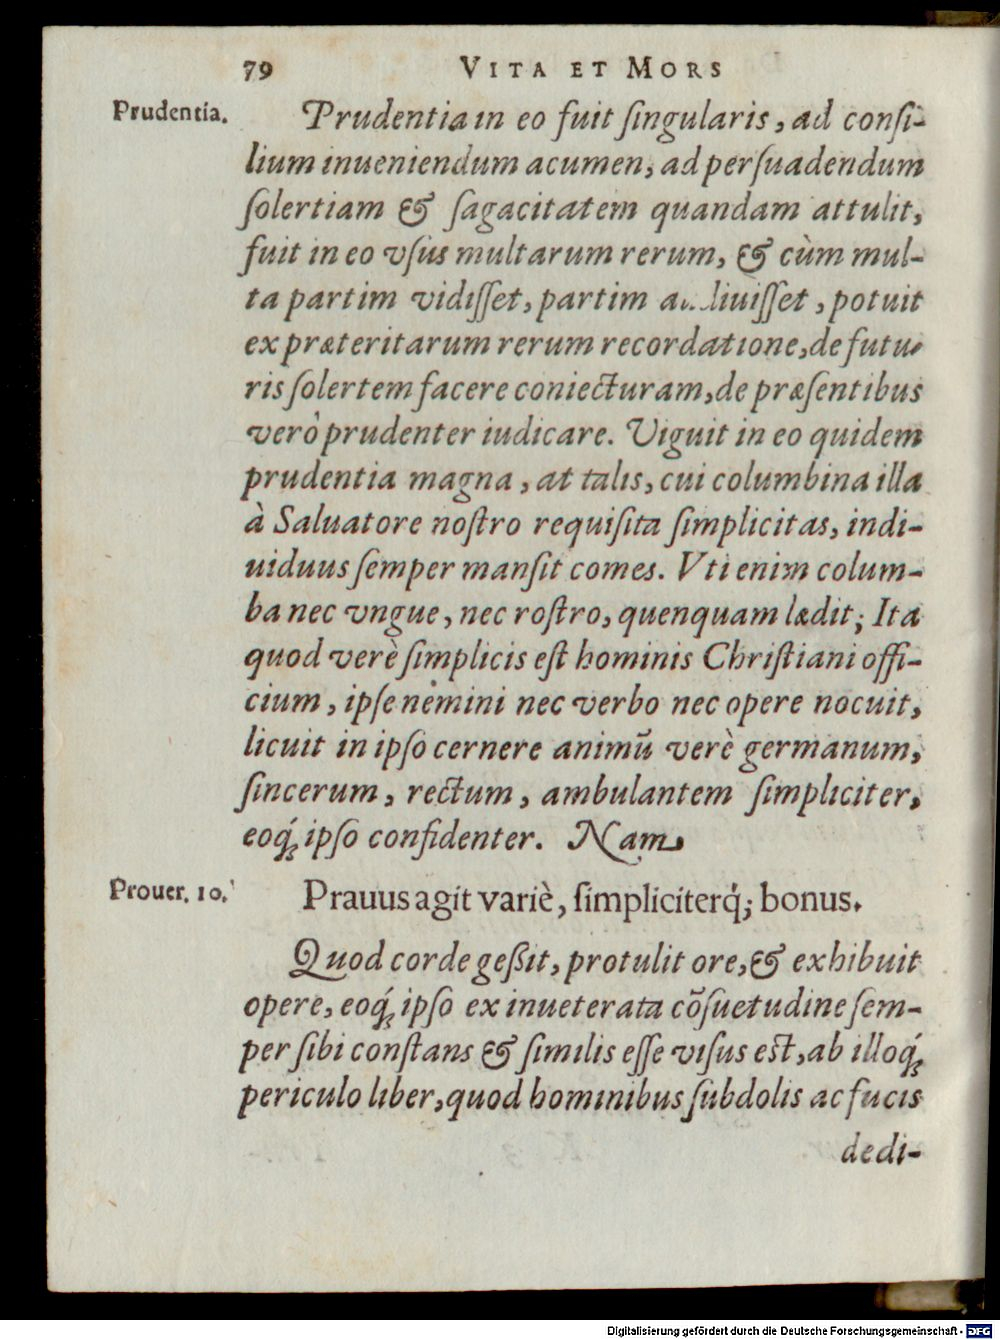 79 VITA ET MORS
Prudentia.
Prudentia in eo fuit ſingularis, ad conſi-
lium inueniendum acumen, ad perſuadendum
ſolertiam & ſagacitatem quandam attulit,
fuit in eo vſus multarum rerum, & cùm mul-
ta partim vidiſſet, partim audiuiſſet, potuit
ex præteritarum rerum recordatione, de futu-
ris ſolertem facere coniecturam, de præſentibus
verò prudenter iudicare. Viguit in eo quidem
prudentia magna, at talis, cui columbina illa
à Saluatore noſtro requiſita ſimplicitas, indi-
uiduus ſemper manſit comes. Vti enim colum-
ba nec vngue, nec roſtro, quenquam lædit; Ita
quod verè ſimplicis eſt hominis Chriſtiani offi-
cium, ipſe nemini nec verbo nec opere nocuit,
licuit in ipſo cernere animũ verè germanum,
ſincerum, rectum, ambulantem ſimpliciter,
eoq́; ipſo confidenter. Nam
Prouer. 10.
Prauus agit variè, ſimpliciterq́; bonus.
Quod corde geßit, protulit ore, & exhibuit
opere, eoq́; ipſo ex inueterata cõſuetudine ſem-
per ſibi conſtans & ſimilis eſſe viſus eſt, ab illoq́;
periculo liber, quod hominibus ſubdolis ac fucis
dedi-
Digitalisierung gefördert durch die Deutsche Forschungsgemeinschaft - DFG